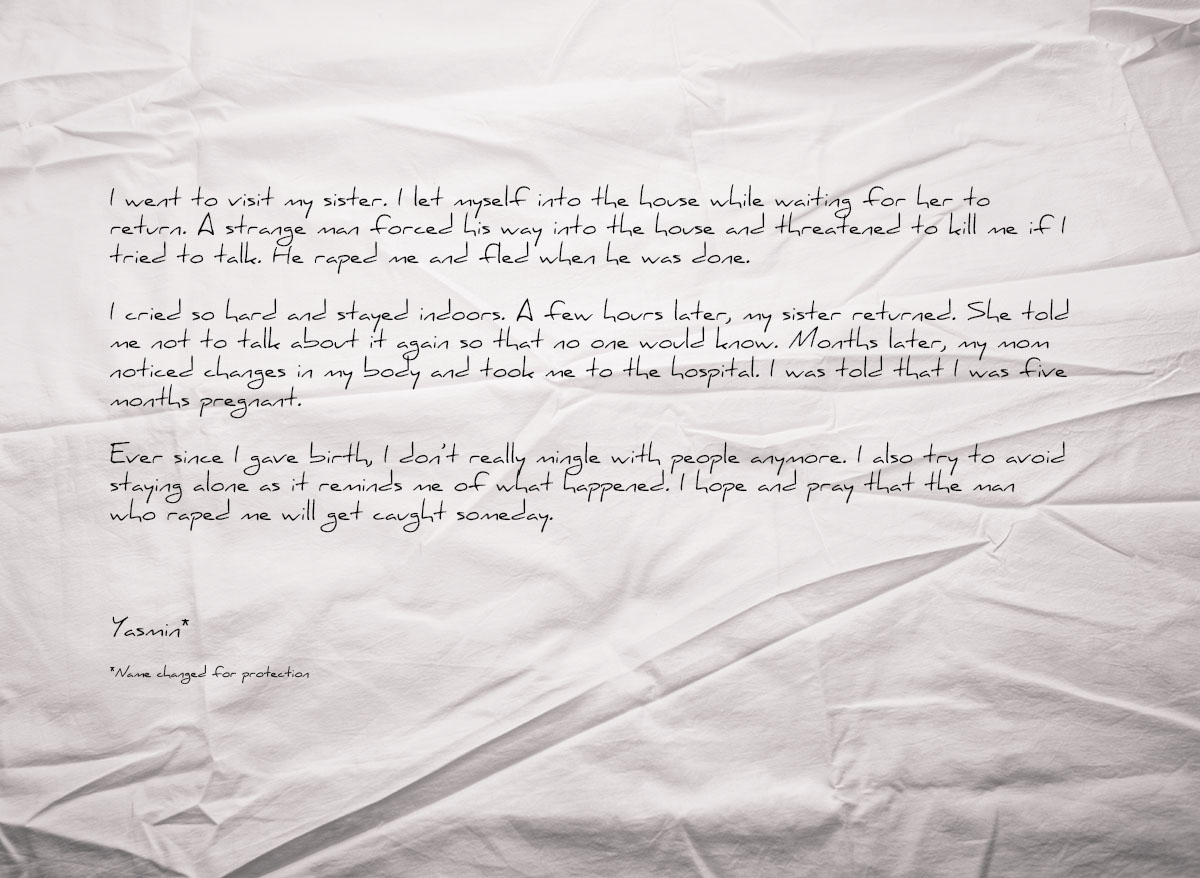 I went to visit my sister. I let myself into the house while waiting for her to
return. A strange man forced his way into the house and threatened to kill me if I
tried to talk. He raped me and fled when he was done.
I cried so hard and stayed indoors. A few hours later, my sister returned. She told
me not to talk about it again so that no one would know. Months later, my mom
noticed changes in my body and took me to the hospital. I was told that I was five
months pregnant.
Ever since I gave birth, I don't really mingle with people anymore. I also try to avoid
staying alone as it reminds me of what happened. I hope and pray that the man
who raped me will get caught someday.
Yasmin*
*Name changed for protection